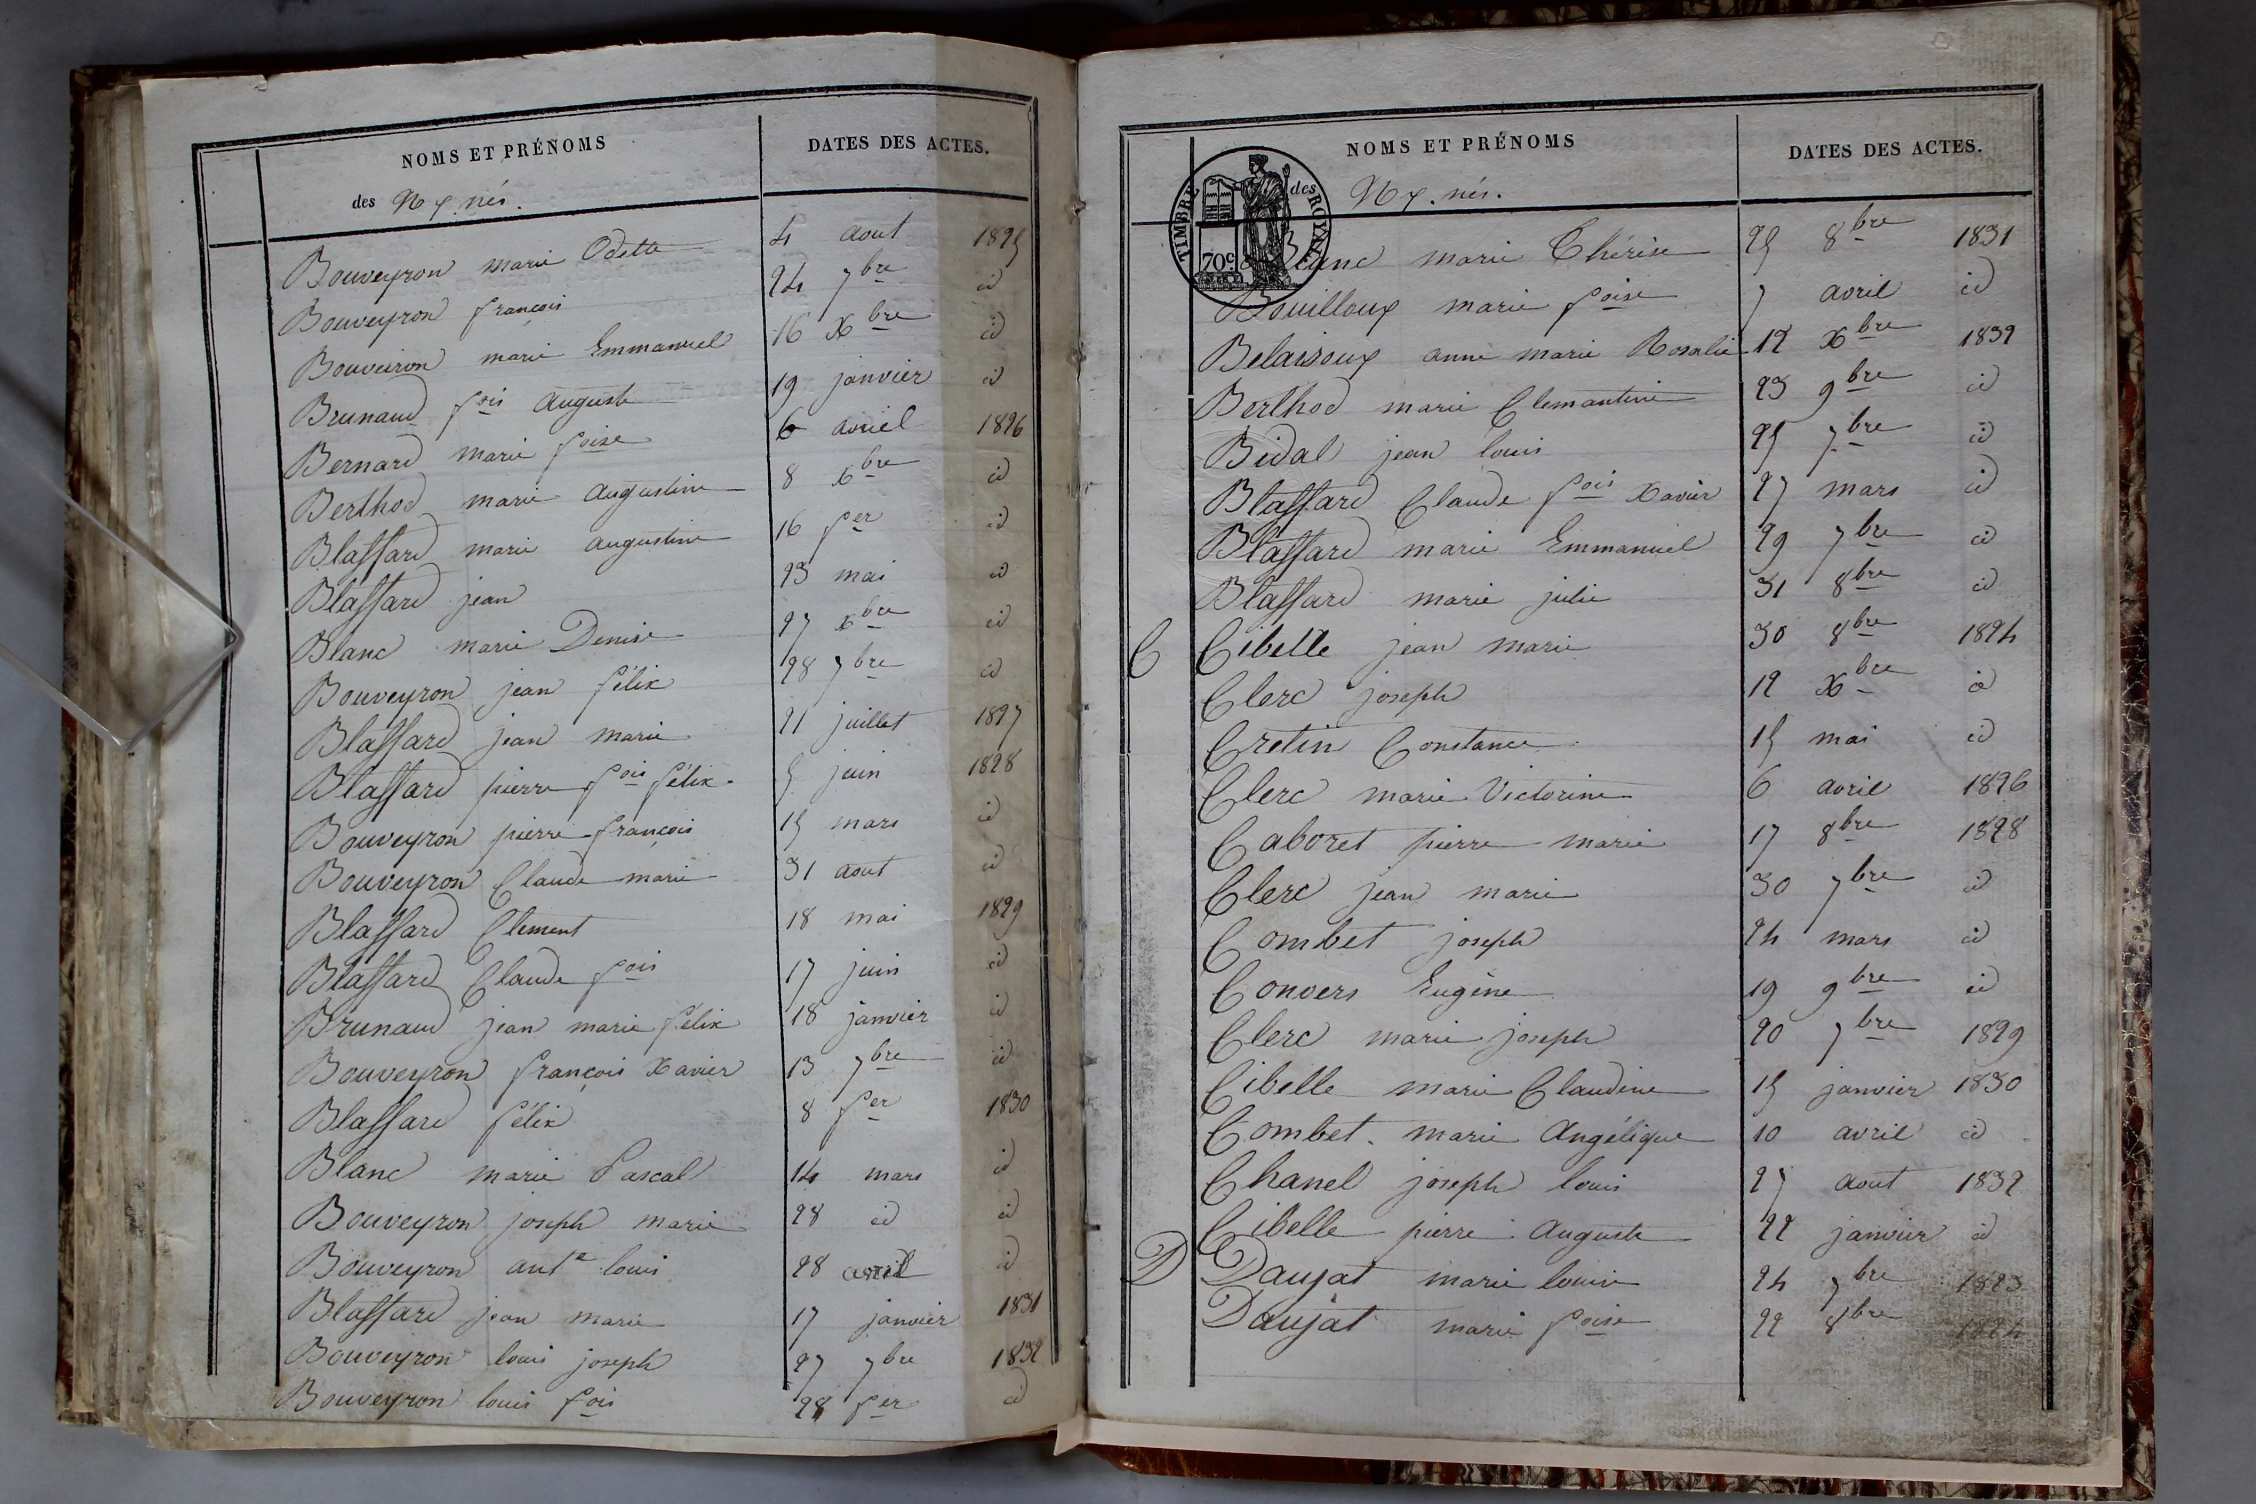 NOMS ET PRÉNOMS DATES DES ACTES.
des Nx. nés.
Bouveyron marie Odette 4 aout 1825
Bouveyron françois 24 7bre id
Bouveiron marie Emmanuel 16 Xbre id
Brunaud fois Auguste 19 janvier id
Bernard marie foise 6 avriel 1826
Berthod marie augustine 8 xbre id
Blaffard marie augustine 16 fer id
Blaffard jean 23 mai id
Blanc marie Denise 27 xbre id
Bouveyron jean félix 28 7bre id
Blaffard jean marie 21 juillet 1827
Blaffard pierre fois félix 5 juin 1828
Bouveyron pierre françois 15 mars id
Bouveyron Claude marie 31 aout id
Blaffard Clément 18 mai 1829
Blaffard Claude fois 17 juin id
Brunaud jean marie félix 18 janvier id
Bouveyron françois Xavier 13 7bre id
Blaffard félix 8 fer 1830
Blanc marie Pascal 14 mars id
Bouveyron joseph marie 28 id id
Bouveyron ante louis 28 avril id
Blaffard jean marie 17 janvier 1831
Bouveyron louis joseph 27 7bre 1832
Bouveyron louis fois 28 fer id
NOMS ET PRÉNOMS DATES DES ACTES.
TIMBRE des ROYAL
70c
Nx. nés.
Blanc marie Thérèse 25 8bre 1831
Bouilloux marie foise 7 avril id
Belaisoux anne marie Rosalie 12 Xbre 1832
Berthod marie Clemantine 23 9bre id
Bidal jean louis 25 7bre id
Blaffard Claude fois Xavier 27 mars id
Blaffard marie Emmanuel 29 7bre id
Blaffard marie julie 31 8bre id
C Cibelle jean marie 30 8bre 1824
Clerc joseph 12 Xbre id
Cretin Constance 15 mai id
Clerc marie Victorine 6 avril 1826
Caboret pierre marie 17 8bre 1828
Clerc jean marie 30 7bre id
Combet joseph 24 mars id
Convers Eugène 19 9bre id
Clerc marie joseph 20 7bre 1829
Cibelle marie Claudine 15 janvier 1830
Combet marie Angélique 10 avril id
Chanel joseph louis 27 aout 1832
Cibelle pierre Auguste 22 janvier id
D Daujat marie louise 24 7bre 1823
Daujat marie foise 22 8bre 1824